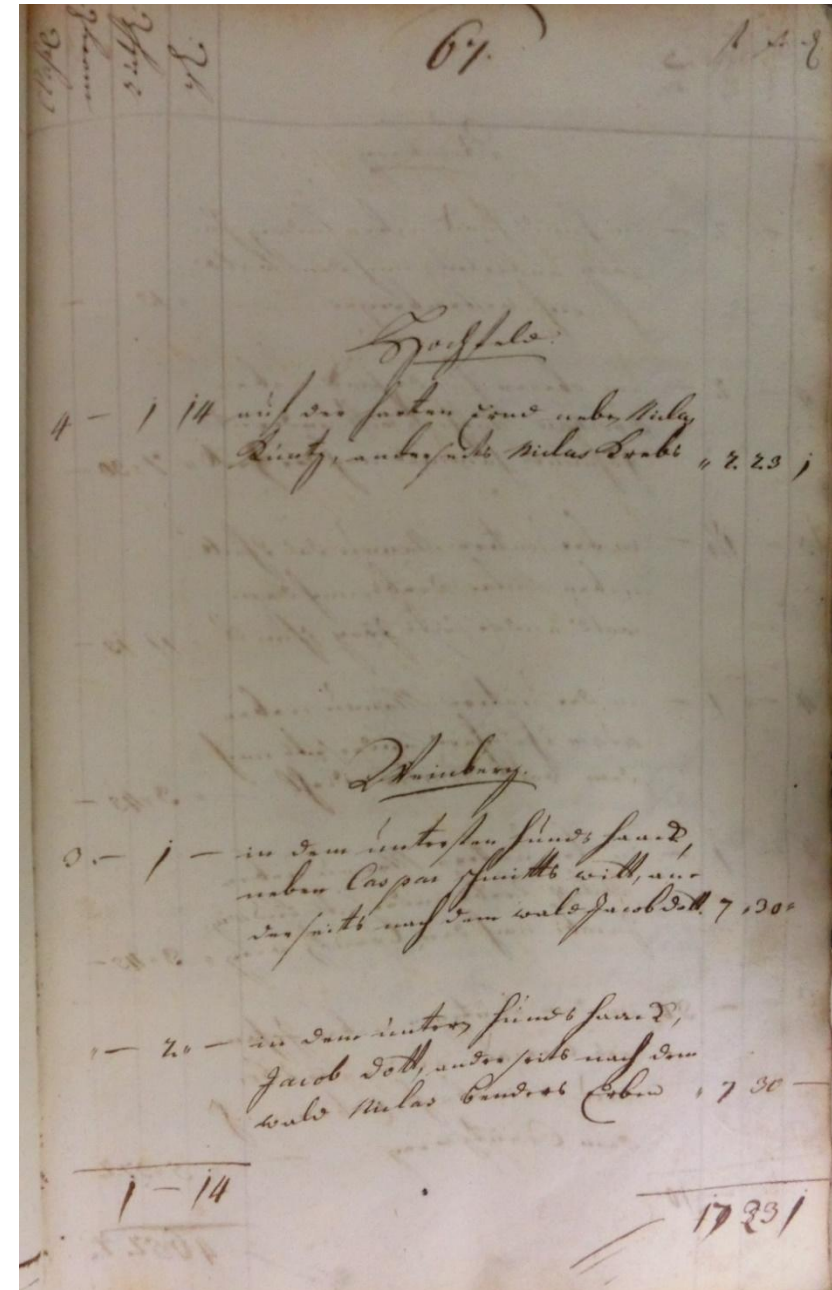 67.
Hochfeld.
4 — 1 14 auf der harten Erd neben Niclas
Kuntz, anderseits Niclas Krebs „ 2. 23 1
Weinberg.
3. — 1 — in dem untersten hunds haard,
neben Caspar schmitts witt, an-
derseits nach dem wald Jacob Dott. 7 „ 30 „
„ — 2. „ — in dem untern hunds haard,
Jacob Dott, anderseits nach dem
wald Niclas Benders Erben „ 7 30 —
1 — 14
17 23 1